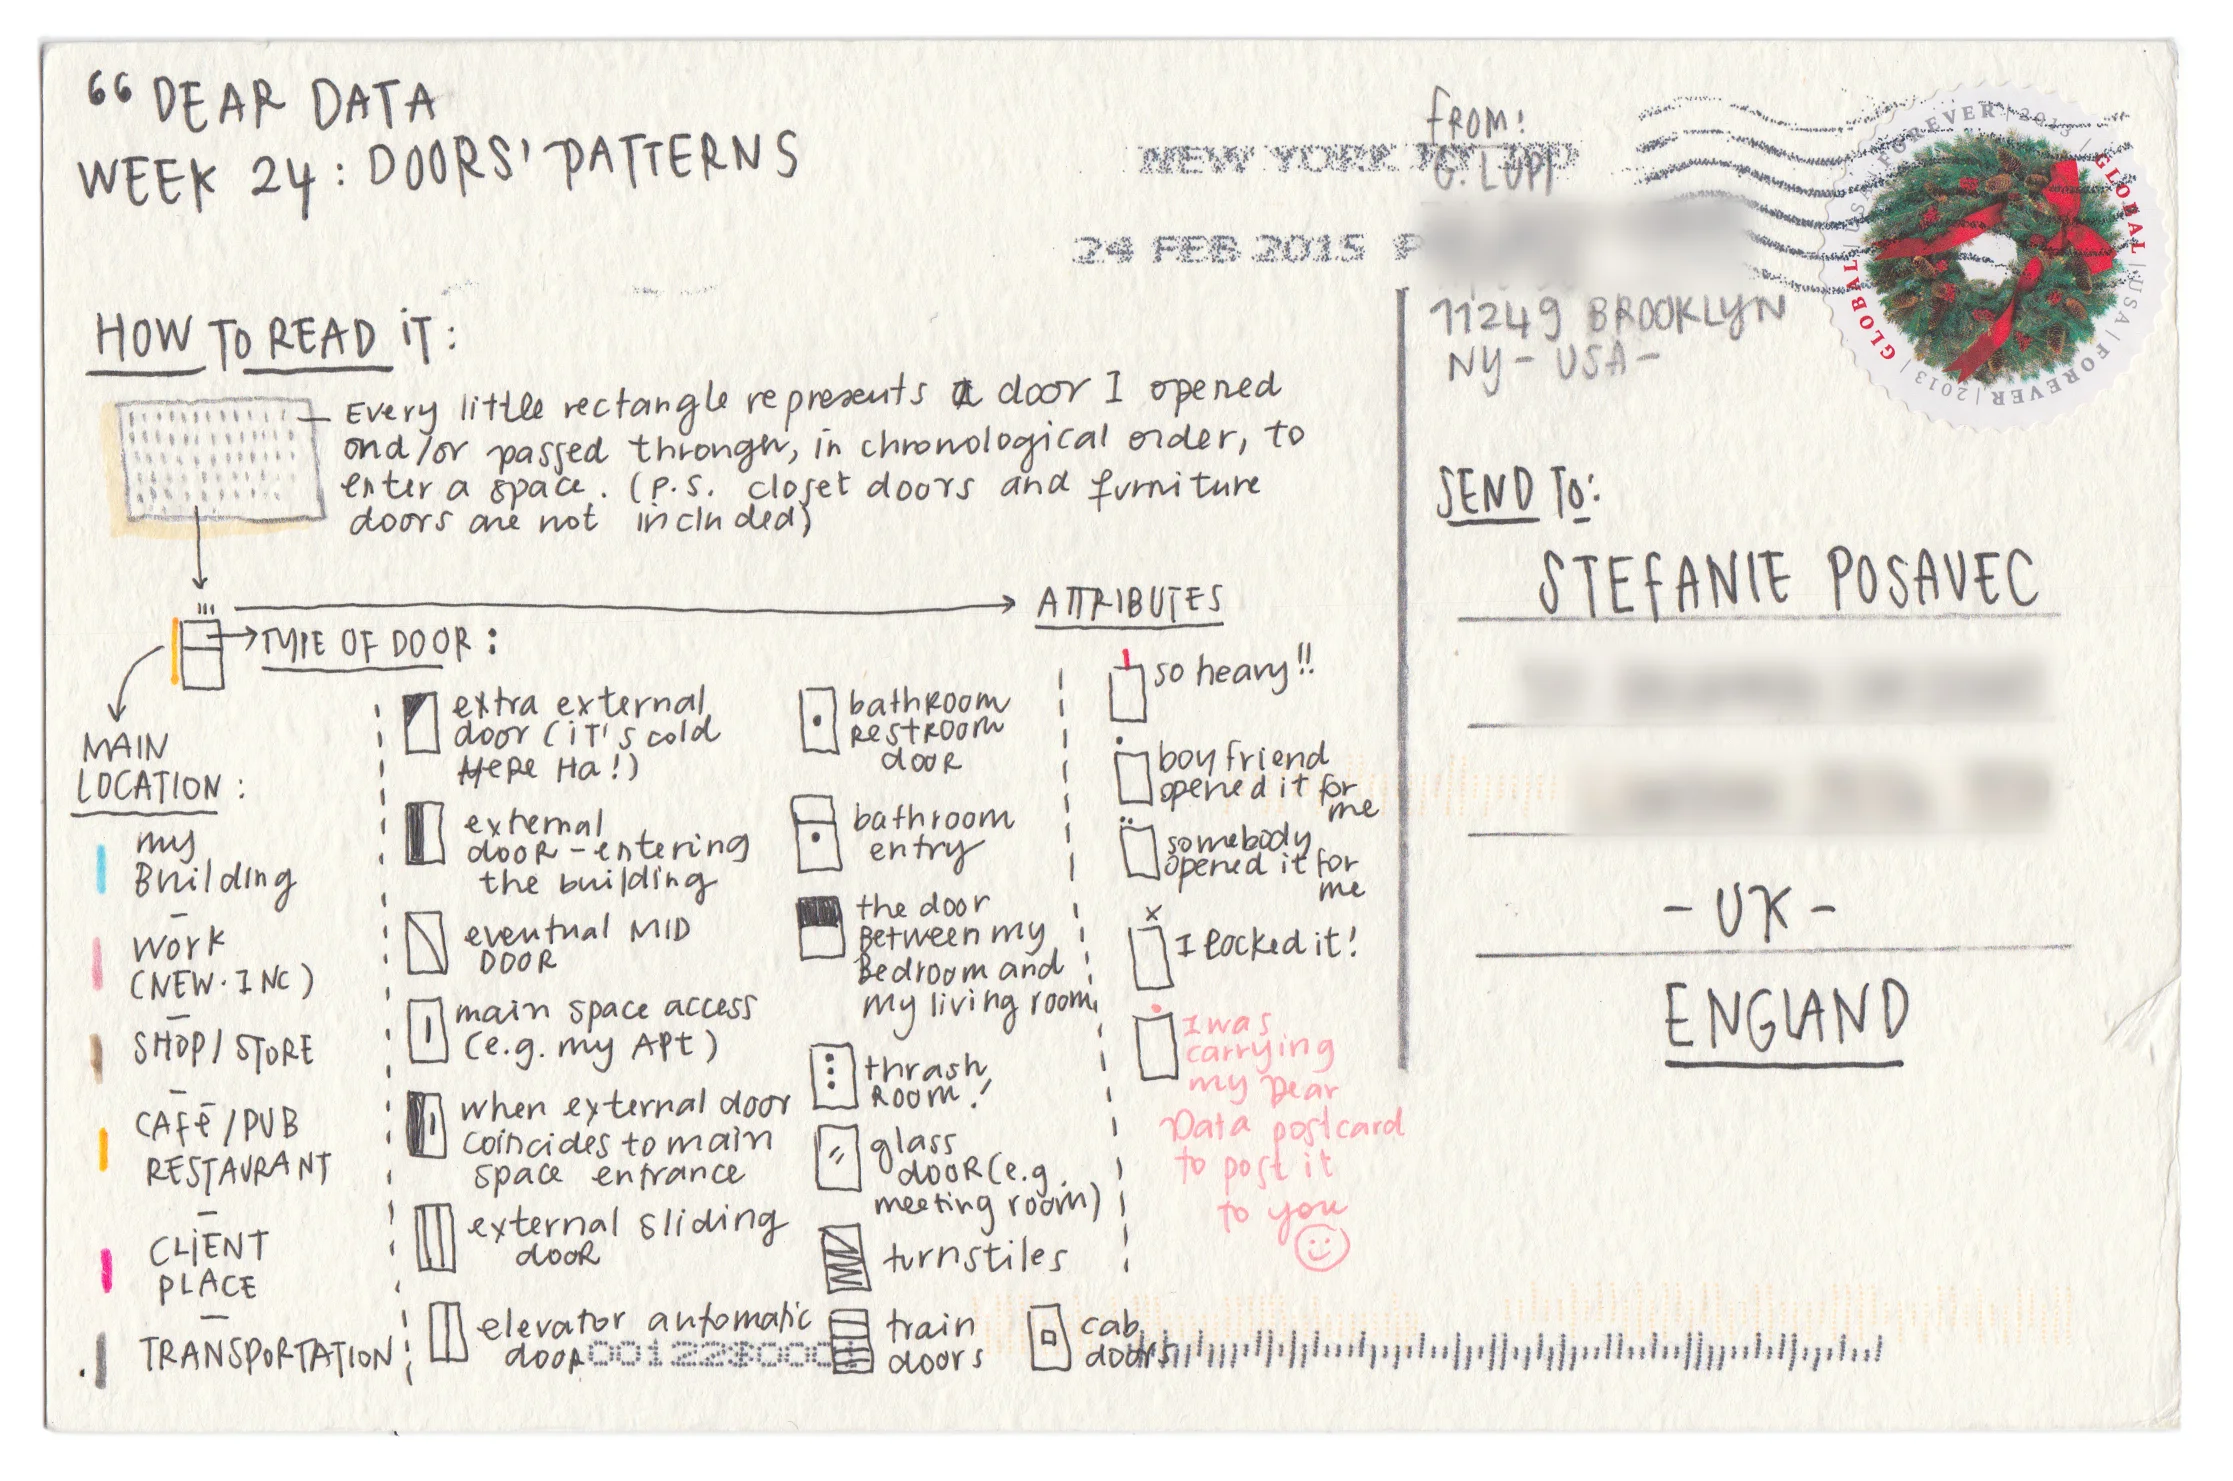 “ DEAR DATA
WEEK 24: DOORS' PATTERNS
HOW TO READ iT:
Every little rectangle represents a door I opened
and/or passed through, in chronological order, to
enter a space. (P.S. closet doors and furniture
doors are not included)
TYPE OF DOOR:
MAIN
LOCATION:
my
Building
–
WORK
(NEW. INC)
–
SHOP/STORE
–
CAFé/PUB
RESTAURANT
–
CLiENT
PLACE
–
TRANSPORTATION
extra external
door (iT's cold
HERE Ha!)
external
dooR – entering
the building
eventual MID
DOOR
main space access
(e.g. my APt)
when external door
coincides to main
space entrance
external sliding
dooR
elevator automatic
door
bathRoom
RestRoom
dooR
bathroom
entry
the door
Between my
Bedroom and
my living room
thrash
Room!
glass
dooR (e.g.
meeting room)
turnstiles
train
doors
cab
doors
ATTRIBUTES
so heavy!!
boyfriend
opened it for
me
somebody
opened it for
me
x
I locked it!
I was
carrying
my Dear
Data postcard
to post it
to you
00122$000
NEW YORK NY 100
24 FEB 2015 P
fROM:
G. LUPI
11249 BROOKLYN
NY – USA –
GLOBAL | USA | FOREVER | 2013 | GLOBAL | USA | FOREVER | 2013 |
SEND TO:
STEFANIE POSAVEC
– UK –
ENGLAND